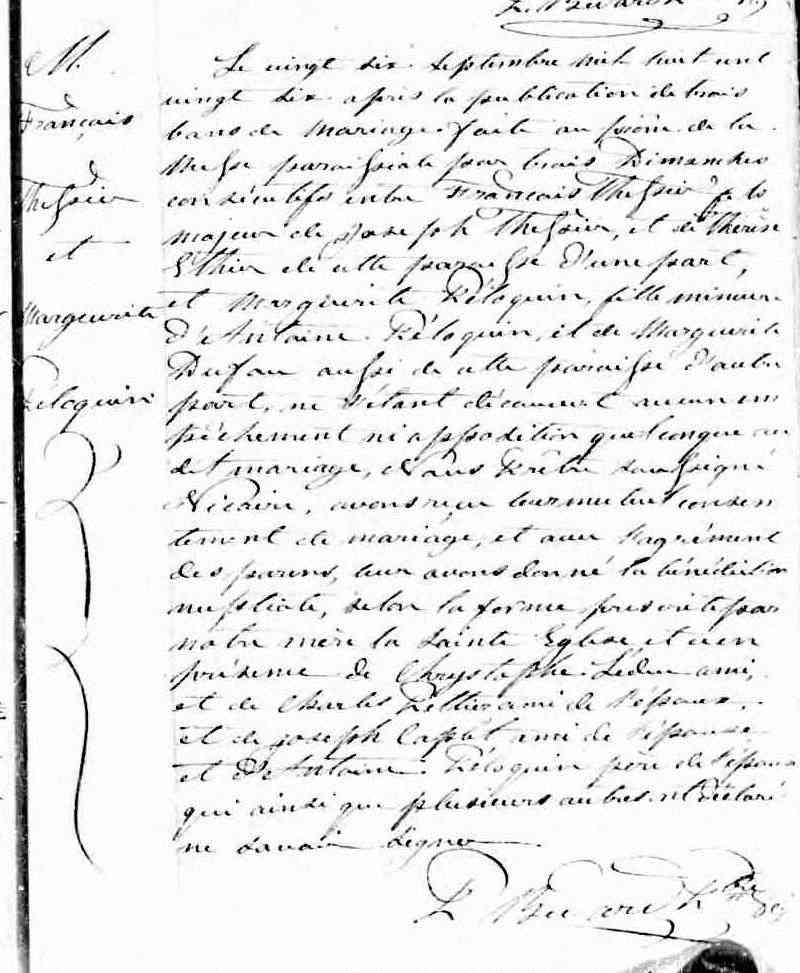 M.
François
Thessier
et
Marguerite
Péloquin
Le vingt six septembre mil huit cent
vingt six après la publication de trois
bans de mariage faite au prône de la
Messe paroissiale par trois Dimanches
consécutifs entre François Thessier fils
majeur de Joseph Thessier, et de Thérèse
Ethier de cette paroisse d'une part,
et Marguerite Péloquin, fille mineure
d'Antoine Péloquin, et de Marguerite
Dufau aussi de cette paroisse d'autre
part, ne s'étant découvert aucun em
pêchement ni opposition quelconque au
dit mariage, Nous Prêtre soussigné
Vicaire, avons reçu leur mutuel consen
tement de mariage, et avec l'agrément
des parens, leur avons donné la bénédiction
nuptiale, selon la forme prescrite par
notre mère la Sainte Eglise et ce en
présence de Chrystophe Leduc ami,
et de Charles ami de l'époux,
et de Joseph ami de l'épouse
et d'Antoine Péloquin père de l'épouse
qui ainsi que plusieurs autres ont déclaré
ne savoir signer
Ptre